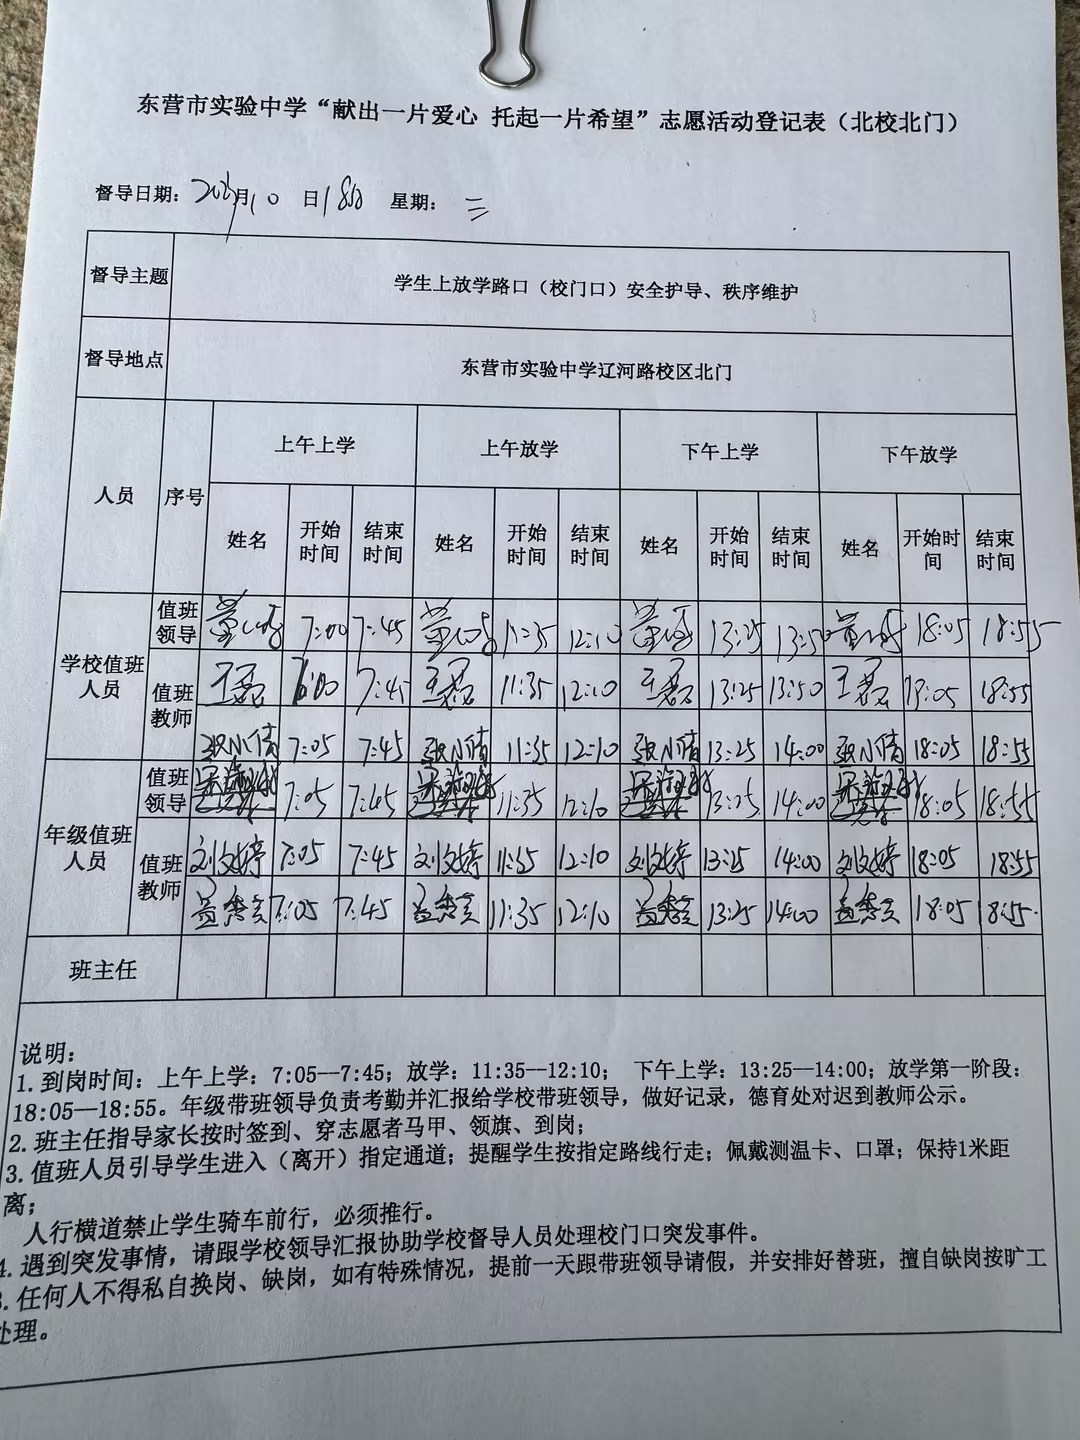 东营市实验中学“献出一片爱心 托起一片希望”志愿活动登记表（北校北门）
督导日期： 月10 日18 星期： 三
督导主题 学生上放学路口（校门口）安全护导、秩序维护
督导地点 东营市实验中学辽河路校区北门
人员 序号 上午上学 上午放学 下午上学 下午放学
姓名 开始时间 结束时间 姓名 开始时间 结束时间 姓名 开始时间 结束时间 姓名 开始时间 结束时间
学校值班人员 值班领导 7:00 7:45 11:35 12:10 13:25 13:50 18:05 18:55
值班教师 王磊 7:45 王磊 11:35 12:10 王磊 13:25 13:50 王磊 18:55
张小倩 7:05 7:45 张小倩 11:35 12:10 张小倩 13:25 14:00 张小倩 18:05 18:55
年级值班人员 值班领导 7:05 7:45 11:35 12:10 13:25 14:00 18:05 18:55
值班教师 刘文婷 7:05 7:45 刘文婷 11:35 12:10 刘文婷 13:25 14:00 刘文婷 18:05 18:55
7:05 7:45 11:35 12:10 13:25 14:00 18:05 18:55
班主任
说明：
1. 到岗时间：上午上学：7:05--7:45；放学：11:35--12:10； 下午上学：13:25--14:00；放学第一阶段：
18:05—18:55。年级带班领导负责考勤并汇报给学校带班领导，做好记录，德育处对迟到教师公示。
2. 班主任指导家长按时签到、穿志愿者马甲、领旗、到岗；
3. 值班人员引导学生进入（离开）指定通道；提醒学生按指定路线行走；佩戴测温卡、口罩；保持1米距
离；
人行横道禁止学生骑车前行，必须推行。
4. 遇到突发事情，请跟学校领导汇报协助学校督导人员处理校门口突发事件。
3. 任何人不得私自换岗、缺岗，如有特殊情况，提前一天跟带班领导请假，并安排好替班，擅自缺岗按旷工
处理。